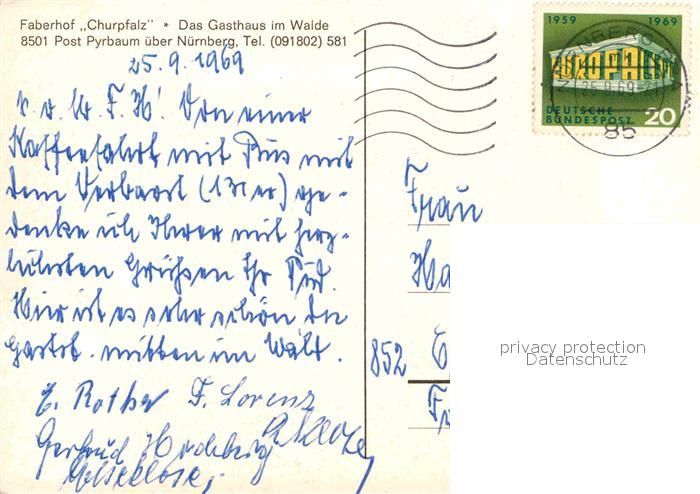 Faberhof „Churpfalz" * Das Gasthaus im Walde
8501 Post Pyrbaum über Nürnberg, Tel. (091802) 581
25.9.1969
Von einer
Kaffeefahrt mit Bus mit
dem Verband ge-
denke ich Ihrer mit herz-
lichsten Grüßen Ihr
Hier ist es sehr schön die
Gastst. mitten im Wald.
E. Rother F. Lorenz
Gertrud
1959 1969
EUROPA CEPT
DEUTSCHE
BUNDESPOST 20
25.-9.69
85
Frau
852
privacy protection
Datenschutz